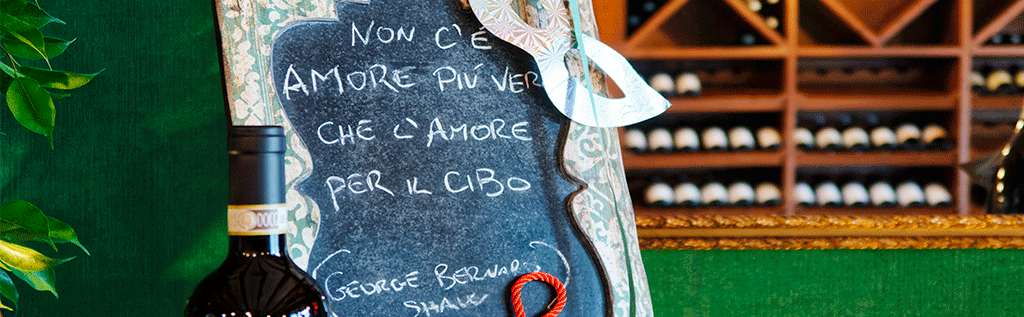 NON C'É
AMORE PIÚ VER
CHE L'AMORE
PER IL CIBO
(GEORGE BERNARD
SHAW)
DOCG